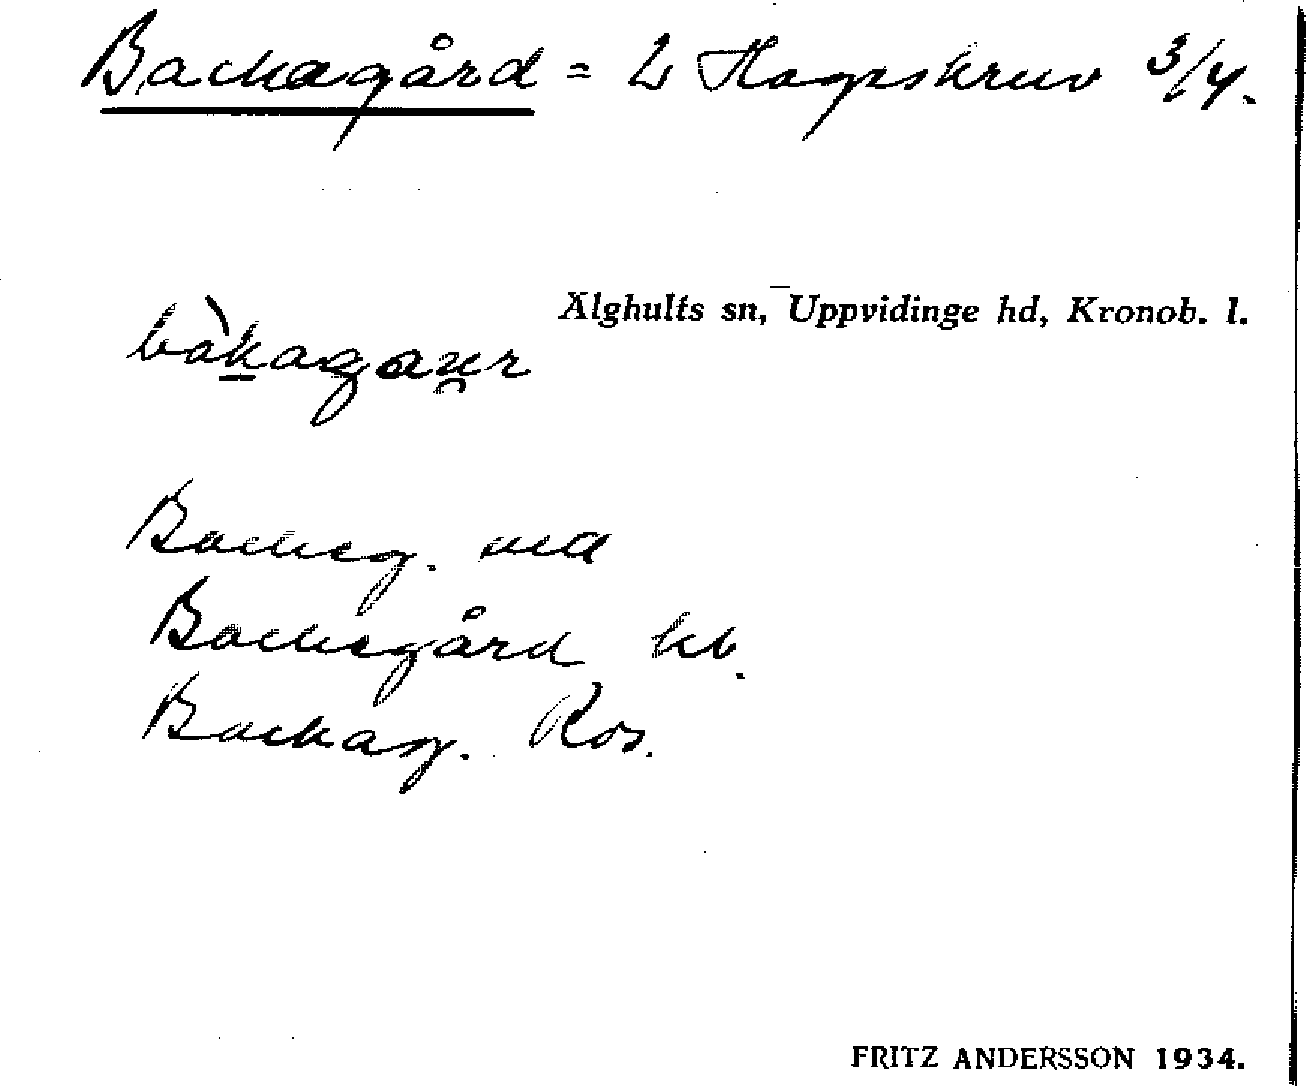 Backagård = L Hagreskruv 3/4.
Älghults sn, Uppvidinge hd, Kronob. l.
Backeg. md
Backegård kb.
Backag. Ros.
FRITZ ANDERSSON 1934.